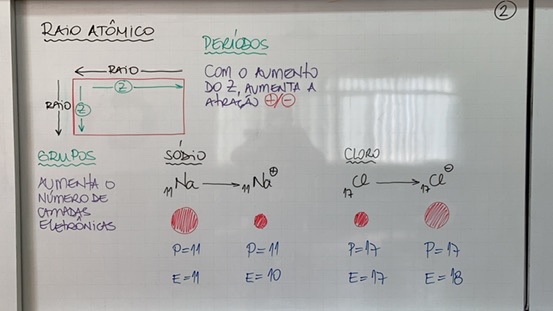 2
RAIO ATÔMICO
PERÍODOS
RAIO
Z
RAIO
Z
COM O AUMENTO
DO Z, AUMENTA A
ATRAÇÃO +/-
GRUPOS
AUMENTA O
NÚMERO DE
CAMADAS
ELETRÔNICAS
SÓDIO
₁₁Na → ₁₁Na⊕
P=11 P=11
E=11 E=10
CLORO
₁₇Cl → ₁₇Cl⊖
P=17 P=17
E=17 E=18